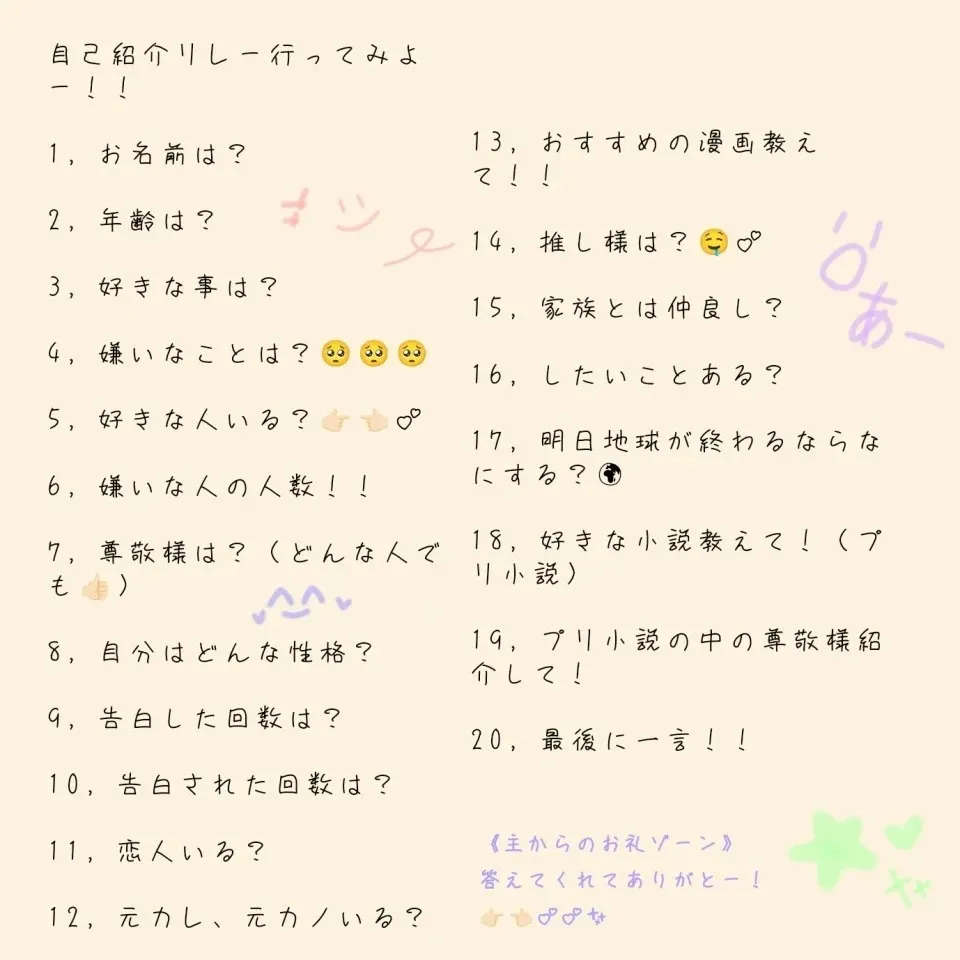 自己紹介リレー行ってみよ
ー！！
1, お名前は？
2, 年齢は？
3, 好きな事は？
4, 嫌いなことは？🥺🥺🥺
5, 好きな人いる？👉🏻👈🏻💕
6, 嫌いな人の人数！！
7, 尊敬様は？（どんな人で
も👍🏻）
8, 自分はどんな性格？
9, 告白した回数は？
10, 告白された回数は？
11, 恋人いる？
12, 元カレ、元カノいる？
13, おすすめの漫画教え
て！！
14, 推し様は？🤤💕
15, 家族とは仲良し？
16, したいことある？
17, 明日地球が終わるならな
にする？🌍
18, 好きな小説教えて！（プ
リ小説）
19, プリ小説の中の尊敬様紹
介して！
20, 最後に一言！！
《主からのお礼ゾーン》
答えてくれてありがとー！
👉🏻👈🏻💕💕✨